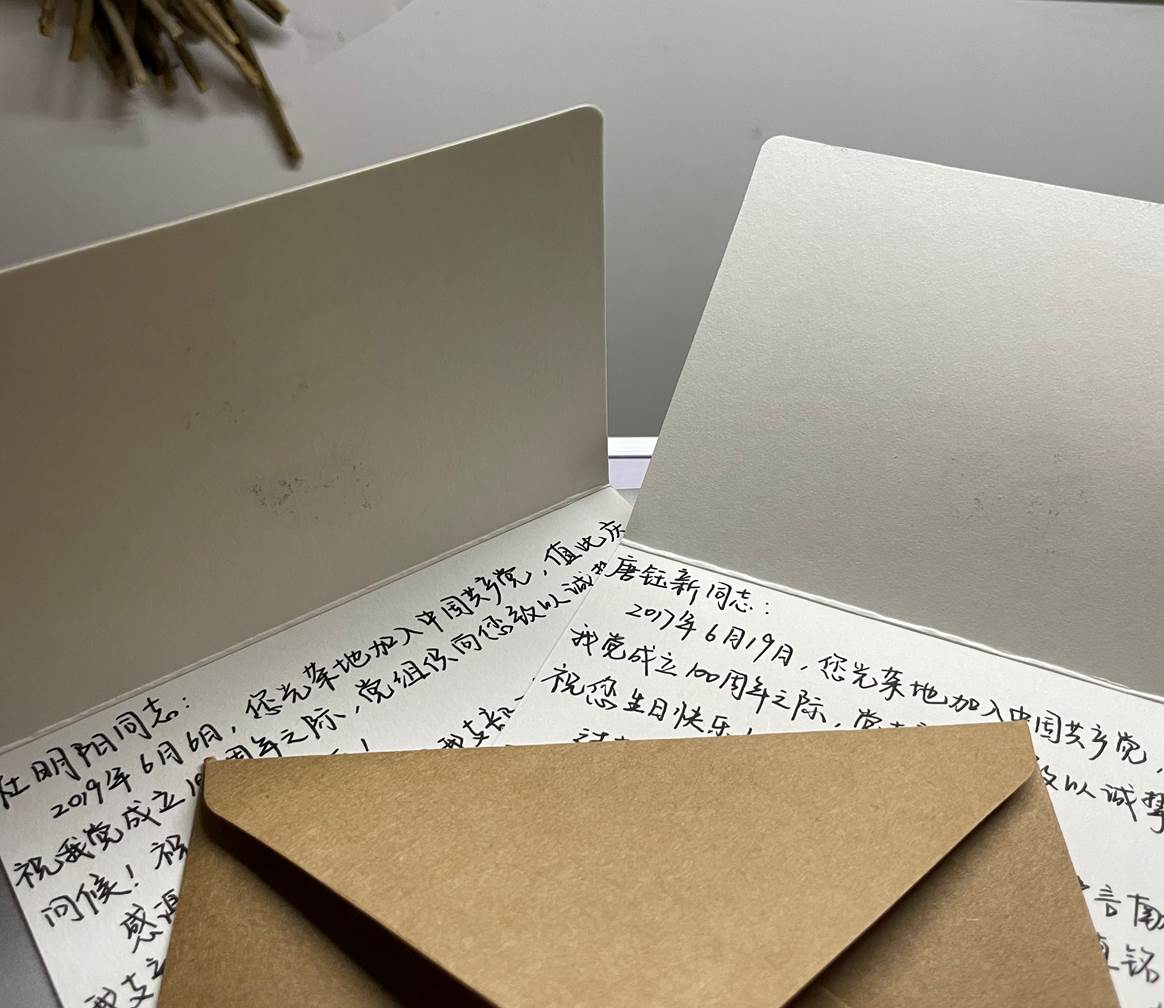 明阳同志：
2019年6月6日，您光荣地加入中国共产党，值此庆
祝我党成立10周年之际，党组织向您致以诚
问候！祝
感
我支
我支部
唐钰新同志：
2017年6月19日，您光荣地加入中国共产党，
我党成立100周年之际，党
致以诚挚
祝您生日快乐！
言
铭